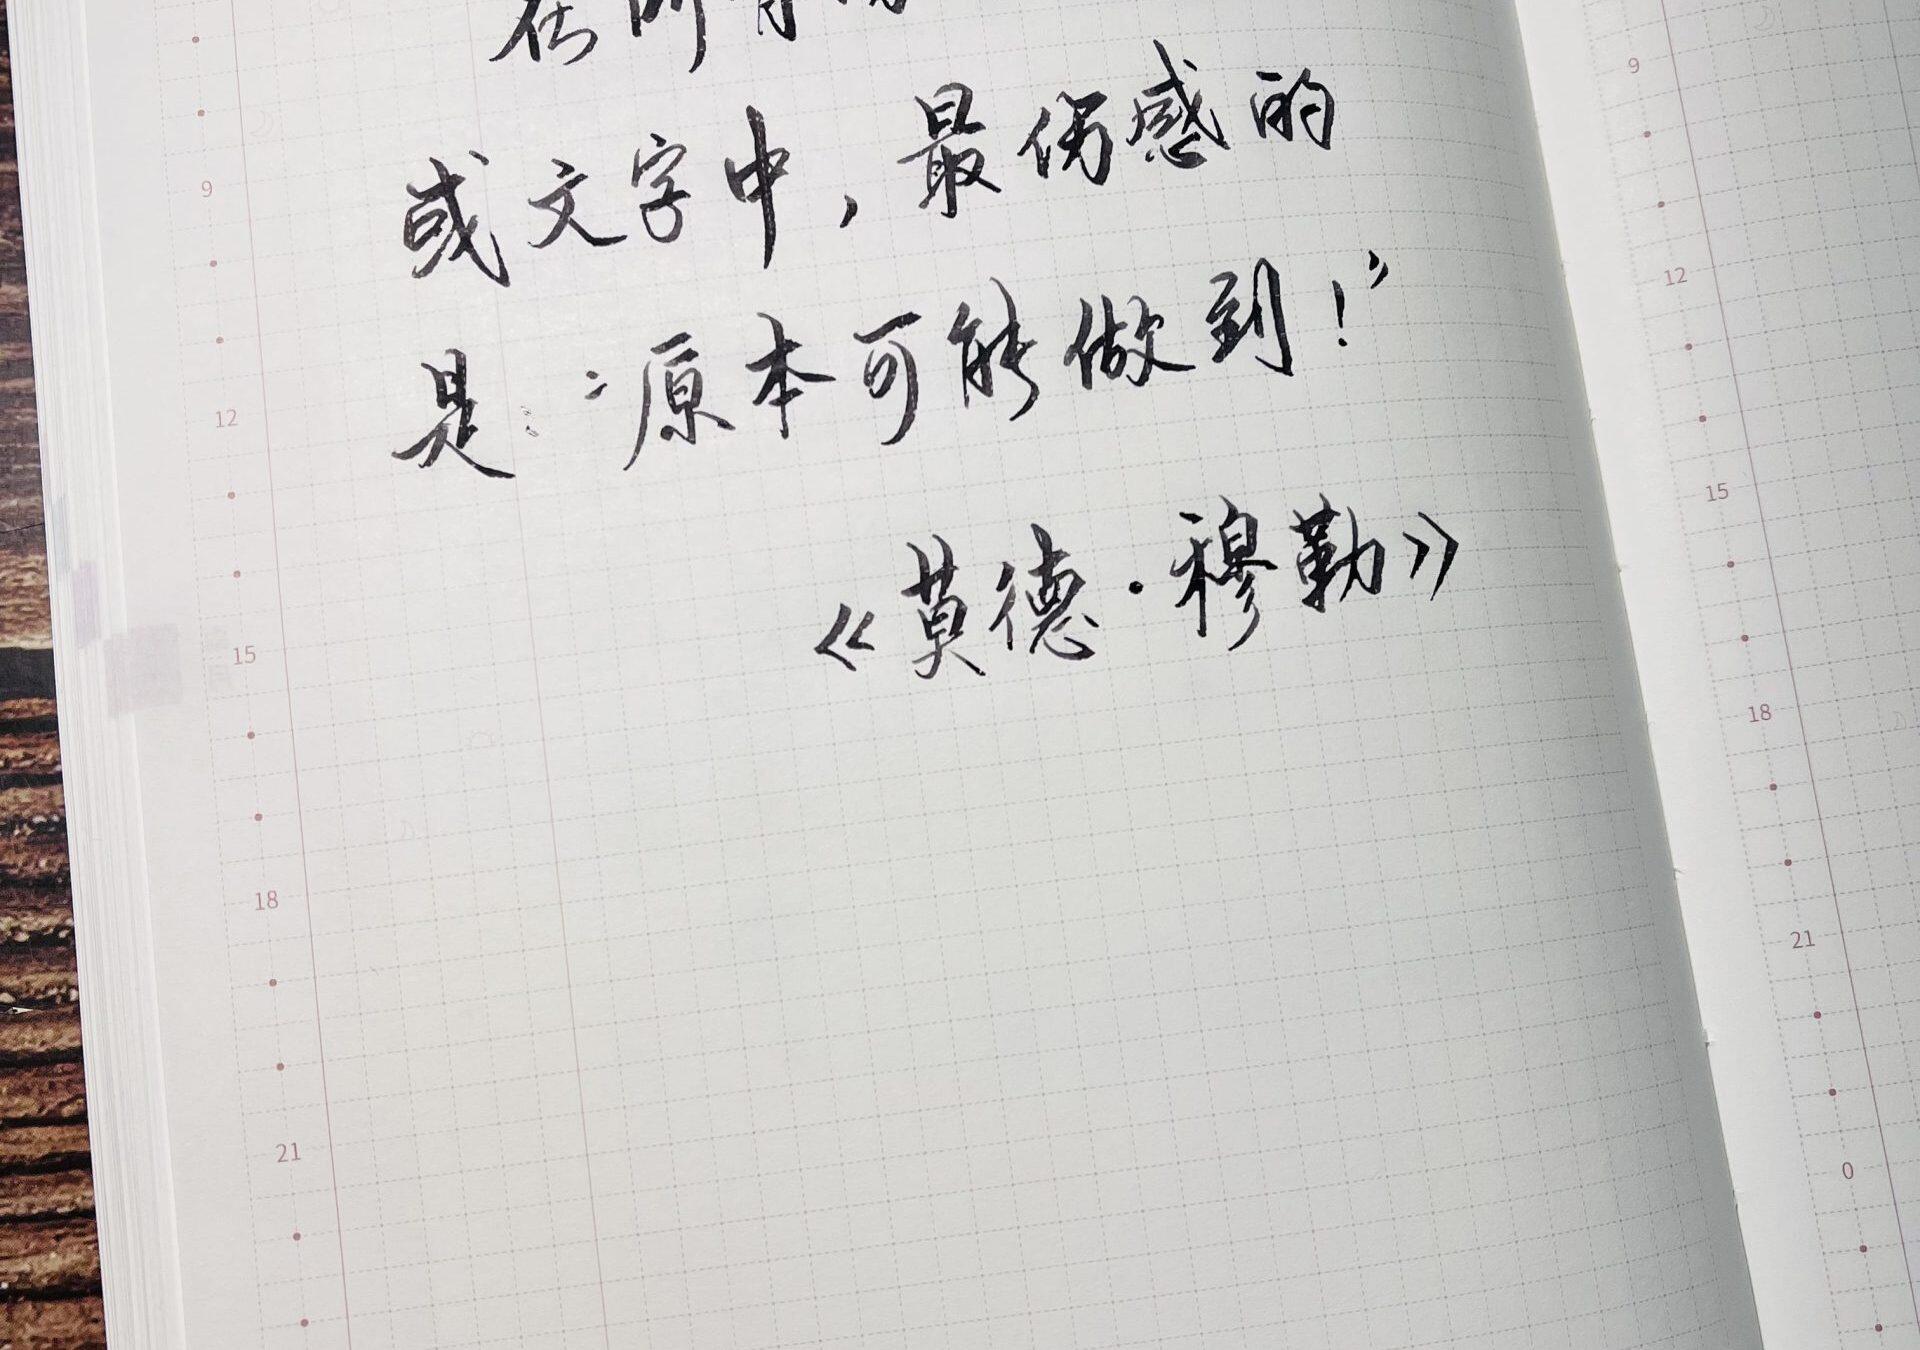 在所有的
或文字中，最伤感的
是：“原本可能做到！”
《莫德·穆勒》
9
12
15
18
21
9
12
15
18
21
0